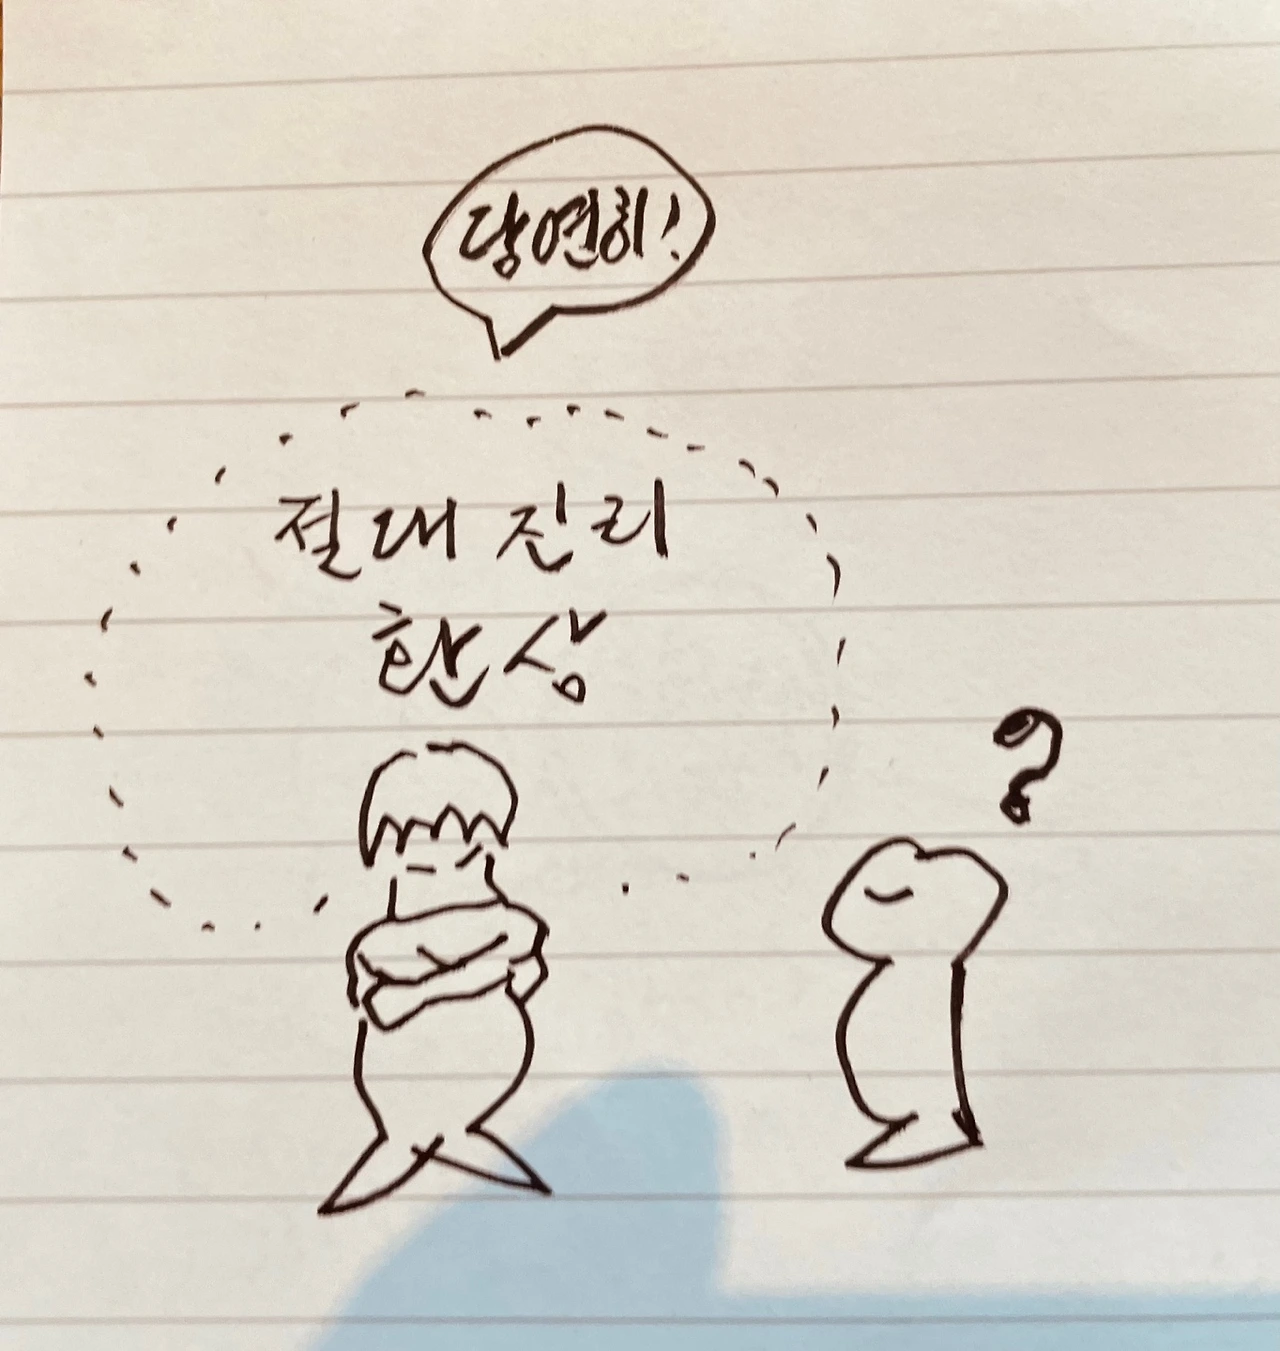 당연히!
절대 진리
환상
?